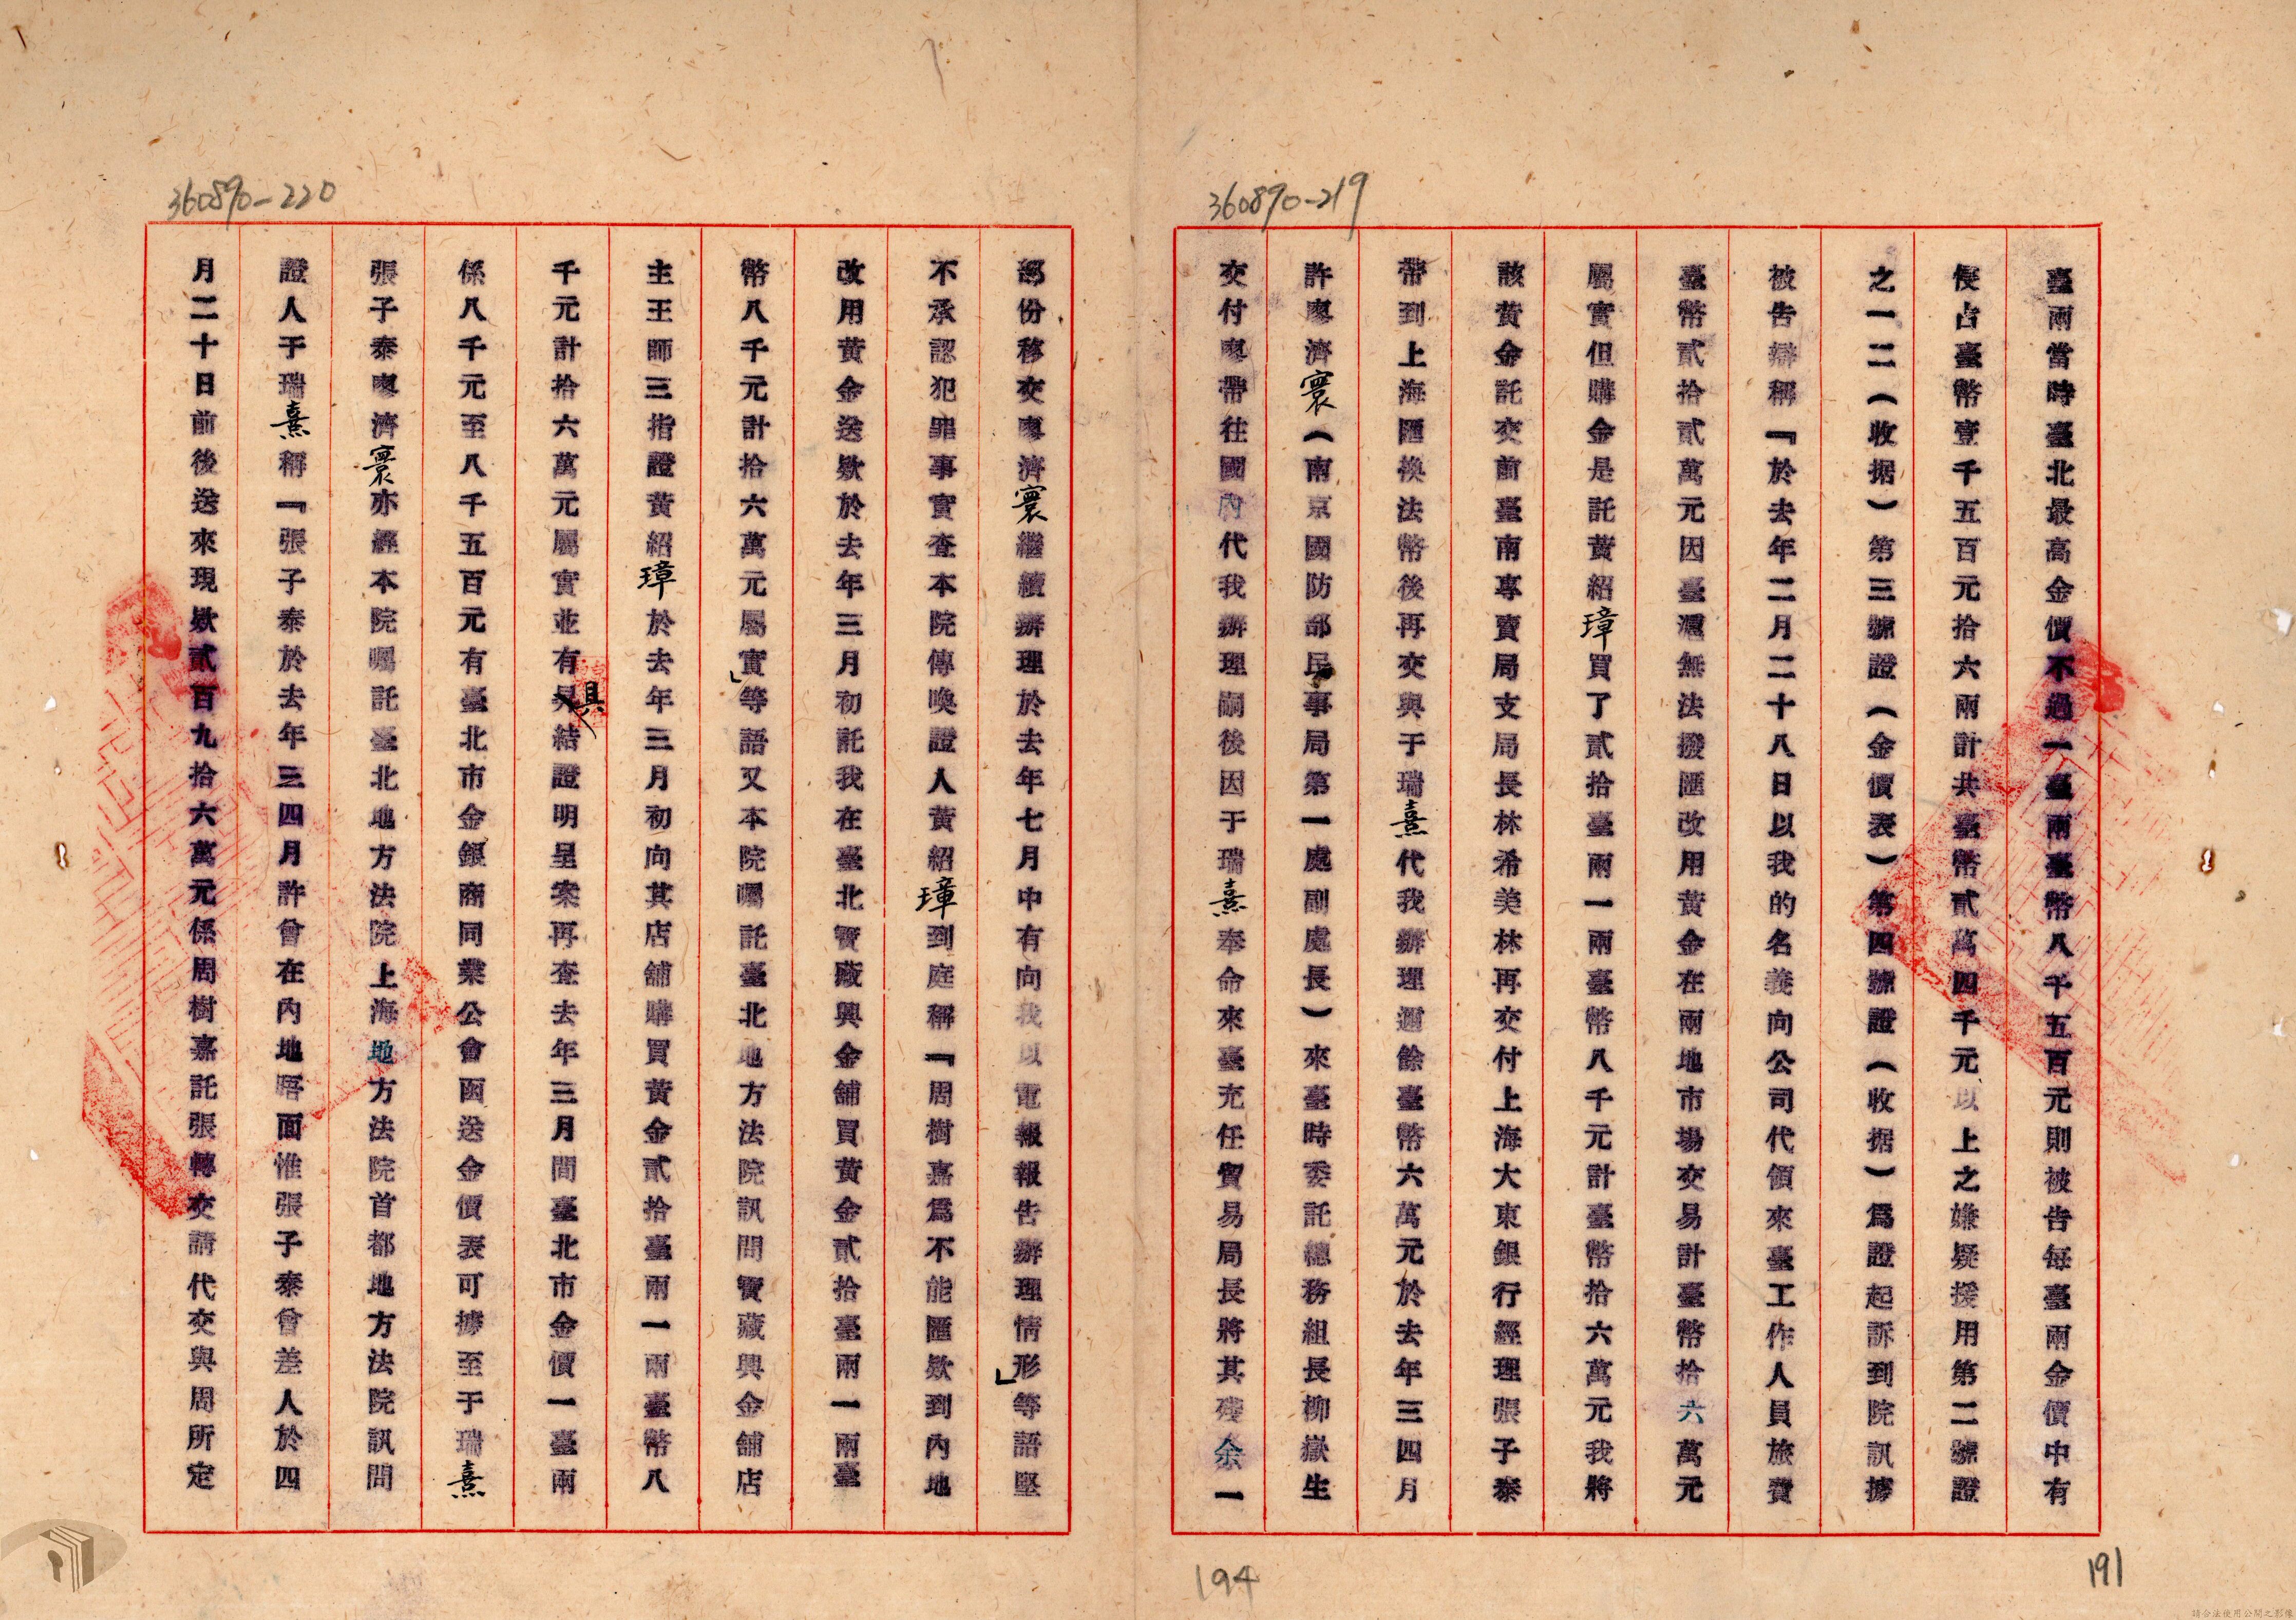 360890-219
臺兩當時臺北最高金價不過一臺兩臺幣八千五百元則被告每臺兩金價中有
侵占臺幣壹千五百元拾六兩計共臺幣貳萬四千元以上之嫌疑援用第二號證
之一二(收据)第三號證(金價表)第四號證(收据)爲證起訴到院訊據
被告辯稱『於去年二月二十八日以我的名義向公司代領來臺工作人員旅費
臺幣貳拾貳萬元因臺滙無法撥匯改用黃金在兩地市場交易計臺幣拾六萬元
屬實但購金是託黃紹璋買了貳拾臺兩一兩臺幣八千元計臺幣拾六萬元我將
該黃金託交前臺南專賣局支局長林希美林再交付上海大東銀行經理張子泰
帶到上海匯換法幣後再交與于瑞熹代我辦理週餘臺幣六萬元於去年三四月
許廖濟寰(南京國防部民事局第一處副處長)來臺時委託總務組長柳嶽生
交付廖帶往國內代我辦理嗣後因于瑞熹奉命來臺充任貿易局長將其殘余一
191
360890-220
部份移交廖濟寰繼續辦理於去年七月中有向我以電報報告辦理情形』等語堅
不承認犯罪事實查本院傳喚證人黃紹璋到庭稱『周樹嘉爲不能匯欵到內地
改用黃金送欵於去年三月初託我在臺北寶藏興金舖買黃金貳拾臺兩一兩臺
幣八千元計拾六萬元屬實』等語又本院囑託臺北地方法院訊問寶藏興金舖店
主王師三指證黃紹璋於去年三月初向其店舖購買黃金貳拾臺兩一兩臺幣八
千元計拾六萬元屬實並有具結證明呈案再查去年三月間臺北市金價一臺兩
係八千元至八千五百元有臺北市金銀商同業公會函送金價表可據至于瑞熹
張子泰廖濟寰亦經本院囑託臺北地方法院上海地方法院首都地方法院訊問
證人于瑞熹稱『張子泰於去年三四月許曾在內地晤面惟張子泰曾差人於四
月二十日前後送來現欵貳百九拾六萬元係周樹嘉託張轉交請代交與周所定
194
請合法使用公開之影像